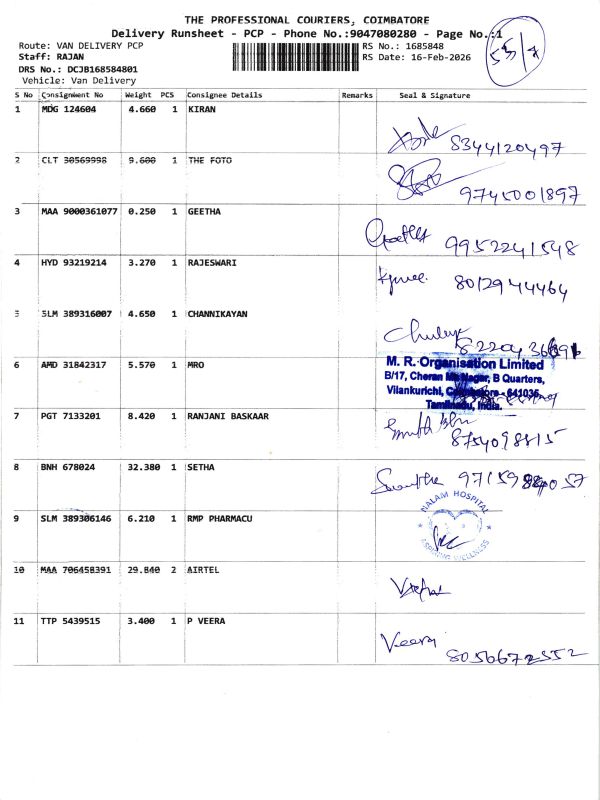 THE PROFESSIONAL COURIERS, COIMBATORE
Delivery Runsheet - PCP - Phone No.:9047080280 - Page No.:1
Route: VAN DELIVERY PCP RS No.: 1685848
Staff: RAJAN RS Date: 16-Feb-2026
DRS No.: DCJB168584801
Vehicle: Van Delivery
S No Consignment No Weight PCS Consignee Details Remarks Seal & Signature
1 MDG 124604 4.660 1 KIRAN
8344120497
2 CLT 30569998 9.600 1 THE FOTO
9745001897
3 MAA 9000361077 0.250 1 GEETHA
Geetha 9952241548
4 HYD 93219214 3.270 1 RAJESWARI
8012944464
5 SLM 389316007 4.650 1 CHANNIKAYAN
6 AMD 31842317 5.570 1 MRO
M. R. Organisation Limited
B/17, Cheran Ma Nagar, B Quarters,
Vilankurichi, Coimbatore - 641035,
Tamilnadu, India.
7 PGT 7133201 8.420 1 RANJANI BASKAAR
8754098815
8 BNH 678024 32.380 1 SETHA
NALAM HOSPITAL
ASPIRING WELLNESS
9 SLM 389306146 6.210 1 RMP PHARMACU
10 MAA 706458391 29.840 2 AIRTEL
11 TTP 5439515 3.400 1 P VEERA
Veera
8056672552